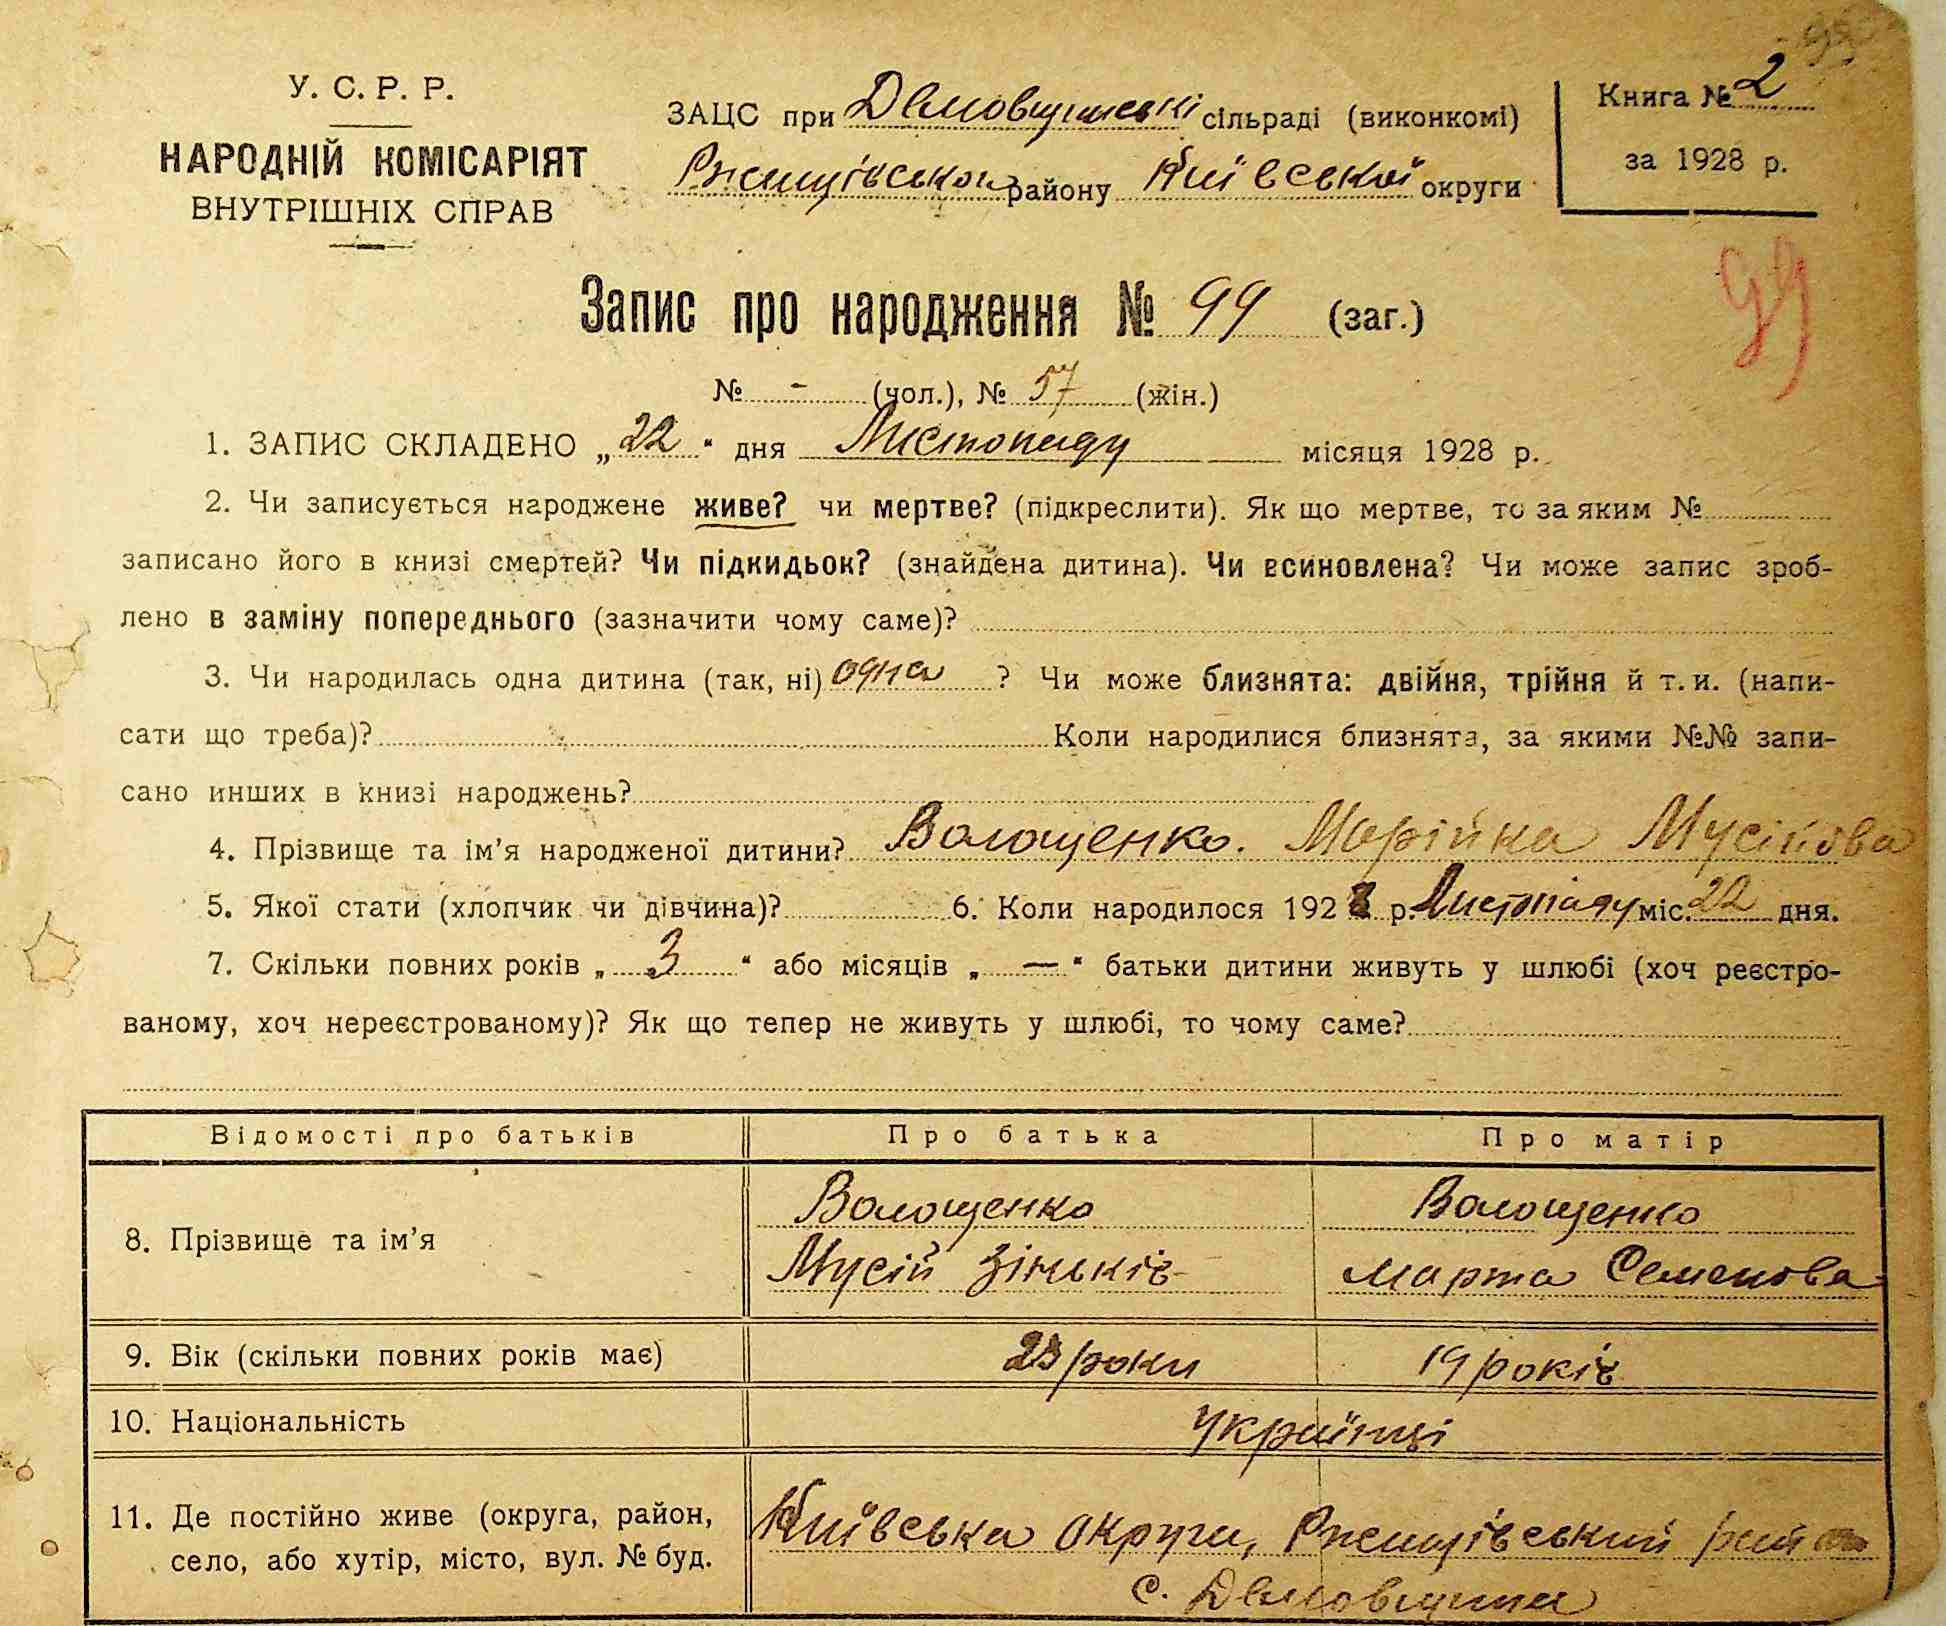 У. С. Р. Р.
НАРОДНІЙ КОМІСАРІЯТ
ВНУТРІШНІХ СПРАВ
ЗАЦС при Демовщинські сільраді (виконкомі)
Ржищівського району Київської округи
Книга № 2
за 1928 р.
99
Запис про народження № 99 (заг.)
№ - (чол.), № 57 (жін.)
1. ЗАПИС СКЛАДЕНО „22“ дня Листопаду місяця 1928 р.
2. Чи записується народжене живе? чи мертве? (підкреслити). Як що мертве, то за яким №
записано його в книзі смертей? Чи підкидьок? (знайдена дитина). Чи всиновлена? Чи може запис зроб-
лено в заміну попереднього (зазначити чому саме)?
3. Чи народилась одна дитина (так, ні) одна ? Чи може близнята: двійня, трійня й т. и. (напи-
сати що треба)? Коли народилися близнята, за якими №№ запи-
сано инших в книзі народжень?
4. Прізвище та ім'я народженої дитини? Волощенко. Марійка Мусійова
5. Якої стати (хлопчик чи дівчина)? 6. Коли народилося 1928 р. Листопаду міс. 22 дня.
7. Скільки повних років „ 3 “ або місяців „ — “ батьки дитини живуть у шлюбі (хоч реєстро-
ваному, хоч нереєстрованому)? Як що тепер не живуть у шлюбі, то чому саме?
Відомості про батьків Про батька Про матір
8. Прізвище та ім'я Волощенко Мусій Зіньків Волощенко Марта Семенова
9. Вік (скільки повних років має) 23 роки 19 років
10. Національність Українці
11. Де постійно живе (округа, район, село, або хутір, місто, вул. № буд. Київська округи, Ржищівський район
с. Демовщина